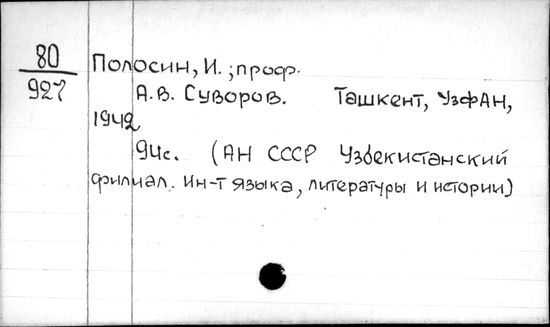 80
927
Полосин, И.; проф.
А.В. Суворов. Ташкент, УзФАН,
1942
94с. (АН СССР Узбекистанский
филиал. Ин-т языка, литературы и истории)